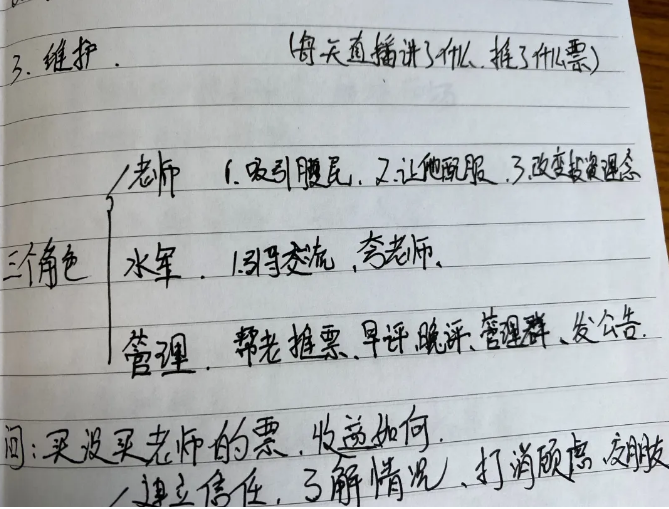 3. 维护. (每天直播讲了什么, 推了什么票)
老师 1. 吸引股民, 2. 让他配服, 3. 改变投资理念
三个角色
水军. 1. 引导交流, 夸老师、
管理. 帮老推票、早评、晚评、管理群、发公告.
问: 买没买老师的票, 收益如何.
建立信任, 了解情况, 打消顾虑, 交朋友